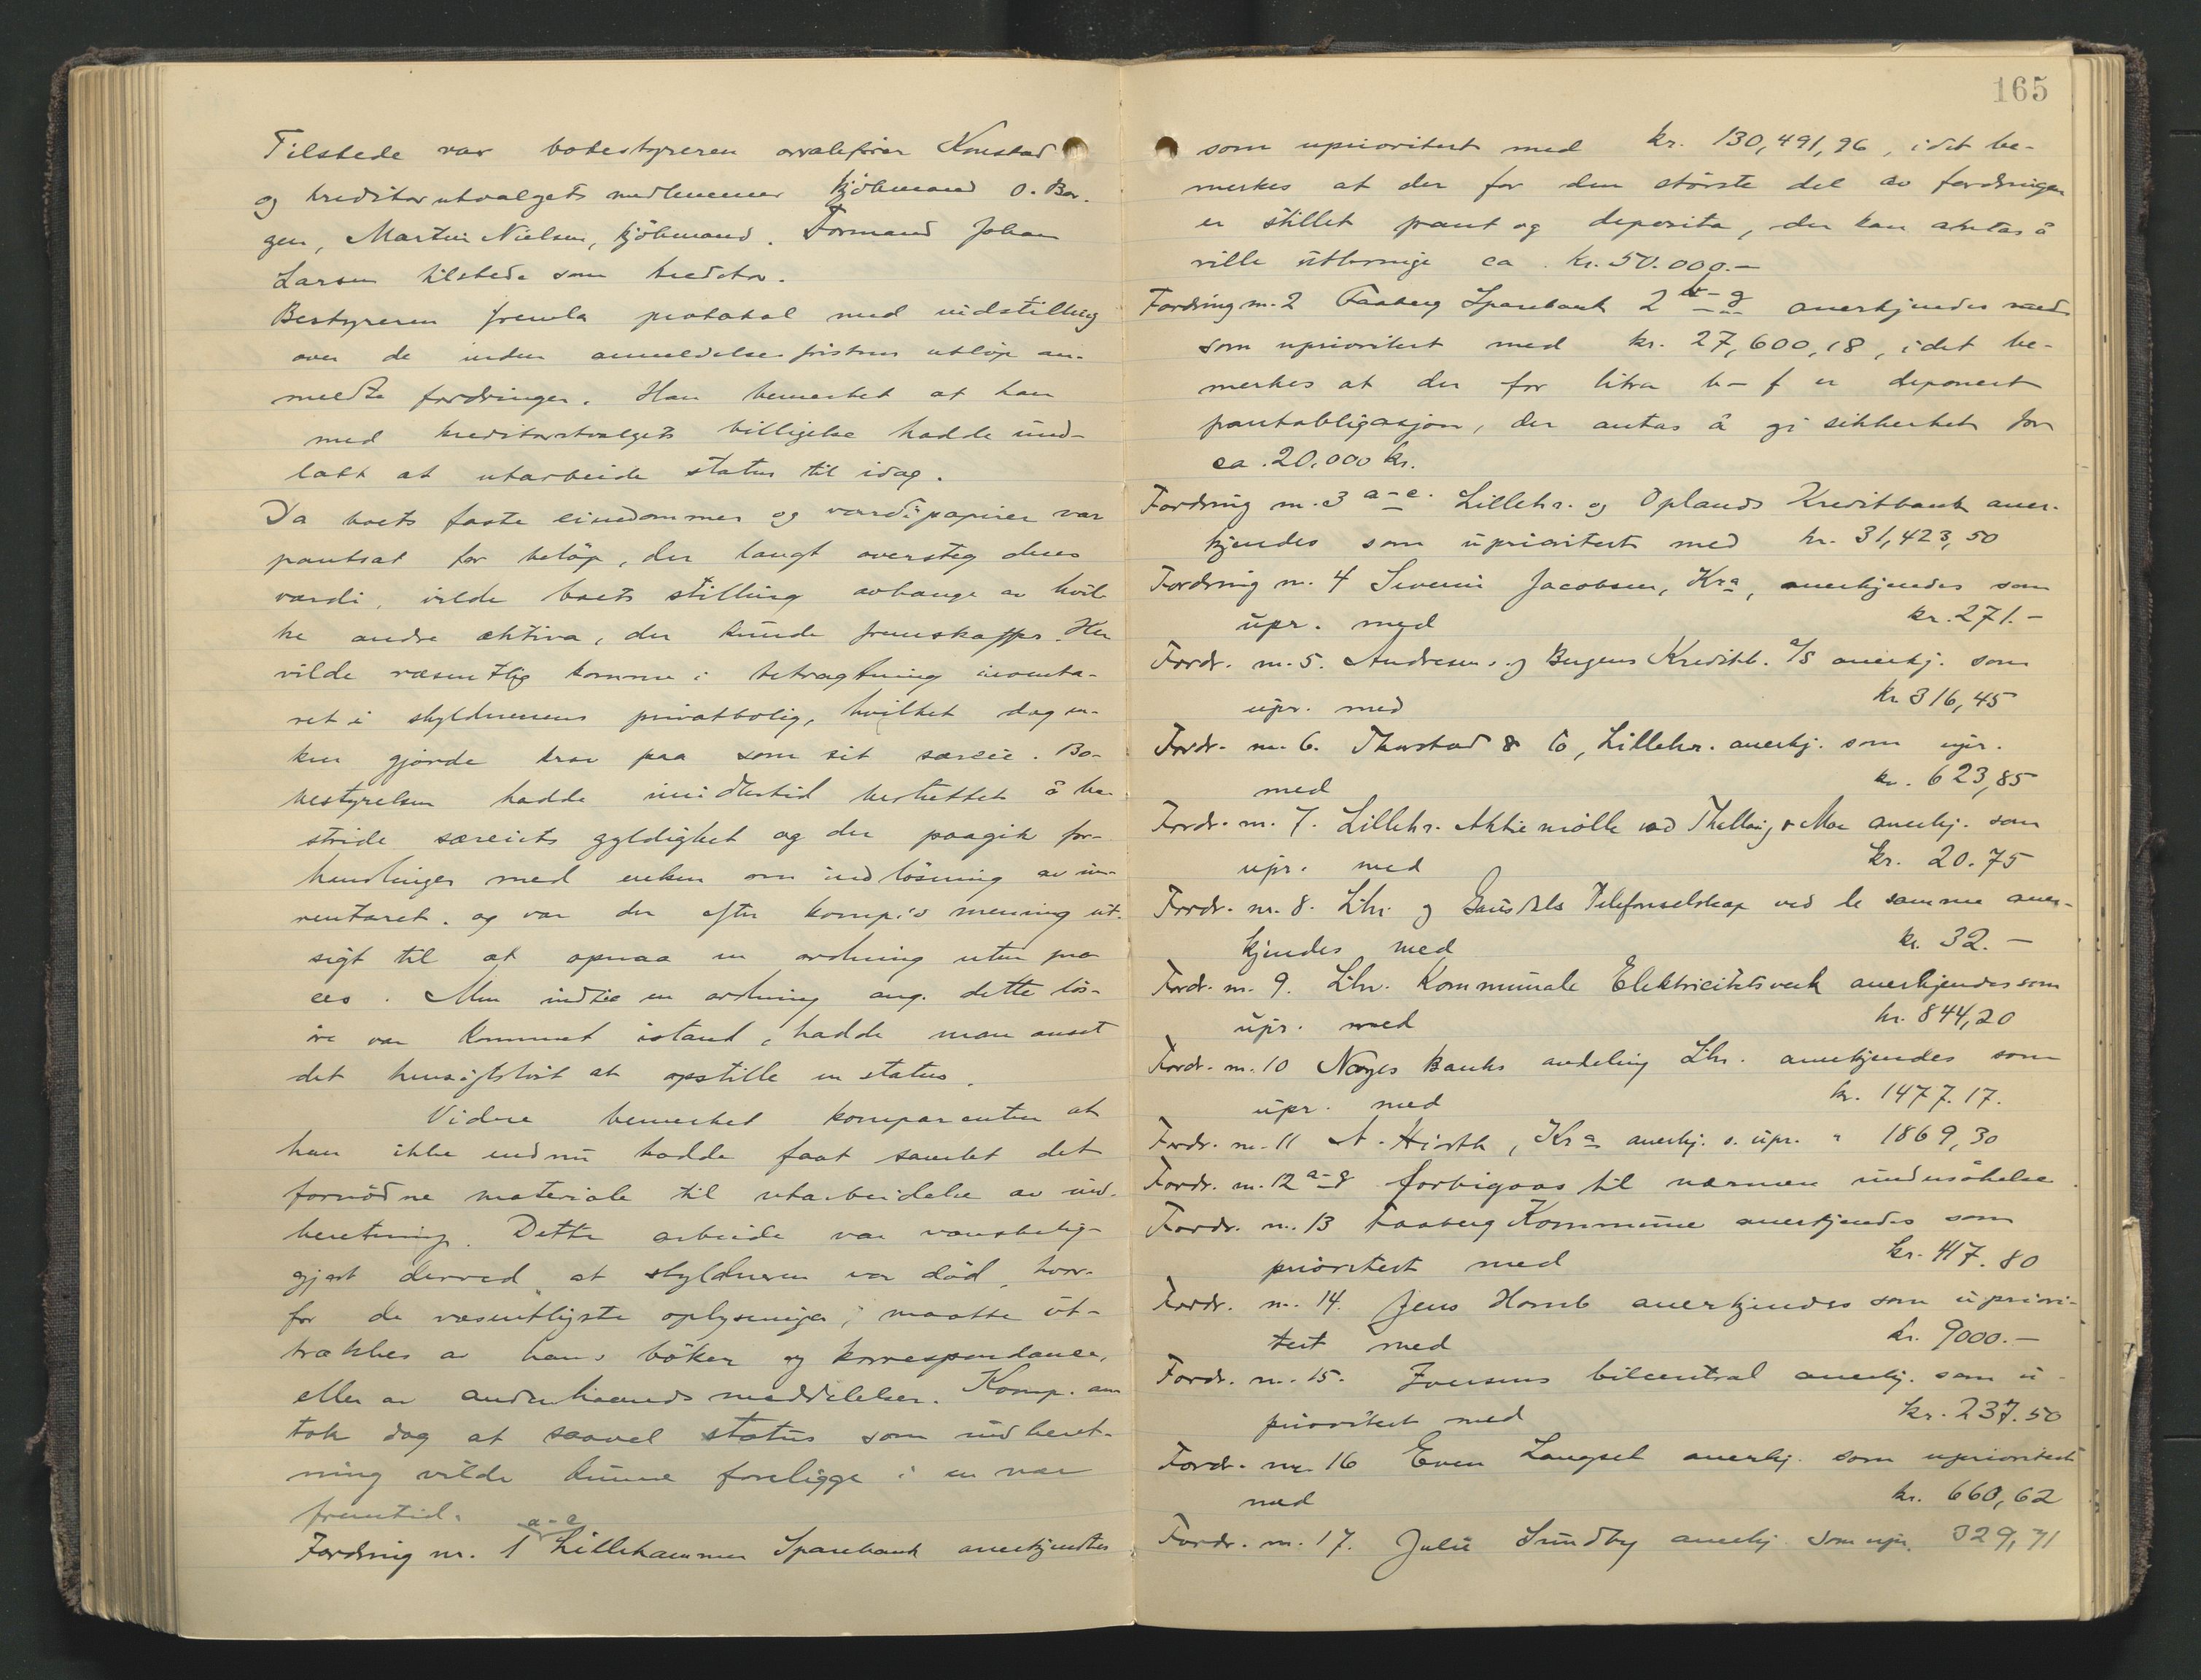 Tilstede var bobestyreren overretssakfører Konstad
og kreditorutvalgets medlemmer kjöbmand O. Bor-
gen, Martin Nielsen, kjöbmand. Formand Johan
Larsen tilstede som kreditor.
Bestyreren fremla protokol med indstilling
over de inden anmeldelsesfristens utlöp an-
meldte fordringer. Han bemerket at han
med kreditorutvalgets billigelse hadde und-
latt at utarbeide status til idag.
Da boets faste eiendommer og værdipapirer var
pantsat for belöp, der langt oversteg deres
værdi, vilde boets stilling avhænge av hvil-
ke andre aktiva, der kunde fremskaffes. Her
vilde væsentlig komme i betragtning inventa-
ret i skyldnerens privatbolig, hvilket dog en-
ken gjorde krav paa som sit særeie. Bo-
bestyrelsen hadde imidlertid besluttet å be-
stride særeiets gyldighet og der paagik for-
handlinger med enken om indlösning av in-
ventaret, og var der efter komp.s mening ut-
sigt til at opnaa en ordning uten pro-
ces. Men indtil en ordning ang. dette lös-
öre var kommet istand, hadde man anset
det hensigtslöst at opstille en status.
Videre bemerket komparenten at
han ikke endnu hadde faat samlet det
fornödne materiale til utarbeidelse av ind-
beretning. Dette arbeide var vanskelig-
gjort derved at skyldneren var död, hvor-
for de væsentligste oplysninger maatte ut-
trækkes av hans böker og korrespondance,
eller av andenhaands meddelelser. Komp. an-
tok dog at saavel status som indberet-
ning vilde kunne foreligge i en nær
fremtid.
Fordring nr. 1 a-e Lillehammer Sparebank anerkjendtes
165
som uprioritert med kr. 130,491,96, idet be-
merkes at der for den störste del av fordringen
er stillet pant og deposita, der kan antas å
ville utbringe ca. kr. 50.000.-
Fordring nr. 2 Faaberg Sparebank 2 a-g anerkjendes med
som uprioritert med kr. 27,600,18, idet be-
merkes at der for litra b-f er deponert
pantobligasjon, der antas å gi sikkerhet for
ca. 20,000 kr.
Fordring nr. 3 a-e. Lillehr. og Oplands Kreditbank aner-
kjendes som uprioritert med kr. 31,423,50
Fordring nr. 4 Severin Jacobsen, Kra, anerkjendes som
upr. med kr. 271.-
Fordr. nr. 5. Andresens og Bergens Kreditb. A/S anerkj. som
upr. med kr 316,45
Fordr. nr. 6. Thorstad & Co, Lillehr. anerkj. som upr.
med kr. 623,85
Fordr. nr. 7. Lillehr. Aktiemölle ved og Moe anerkj. som
upr. med kr. 20.75
Fordr. nr. 8. Lhr. og Gausdals Telefonselskap ved de samme aner-
kjendes med kr. 32.-
Fordr. nr. 9. Lhr. Kommunale Elektricitetsverk anerkjendes som
upr. med kr. 844,20
Fordr. nr. 10 Norges Banks avdeling Lhr. anerkjendes som
upr. med kr. 1477.17.
Fordr. nr. 11 A. Hiorth, Kra anerkj. s. upr. " 1869,30
Fordr. nr. 12 a-g forbigaas til nærmere undersökelse.
Fordr. nr. 13 Faaberg Kommune anerkjendes som
prioritert med kr. 417.80
Fordr. nr. 14. Jens Homb anerkjendes som upriori-
tert med kr. 9000.-
Fordr. nr. 15. Iversens bilcentral anerkj. som u-
prioritert med kr. 237.50
Fordr. nr. 16 Even Langset anerkj. som uprioritert
med kr. 660,62
Fordr. nr. 17. Julie Sundby anerkj. som upr. 329,71